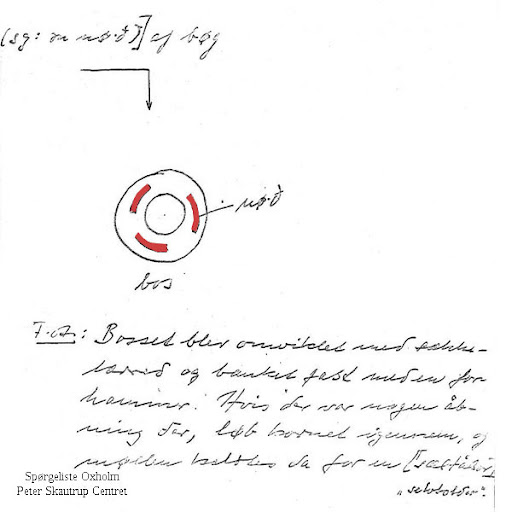 (sg: en nø·ð)] af bøg
nø·ð
bos
F.ex.: Bosset blev omviklet med sække-
lærred og banket fast med en for-
hammer. Hvis der var nogen åb-
ning der, løb kornet igennem, og
møllen kaldtes da for en
Spørgeliste Oxholm
Peter Skautrup Centret